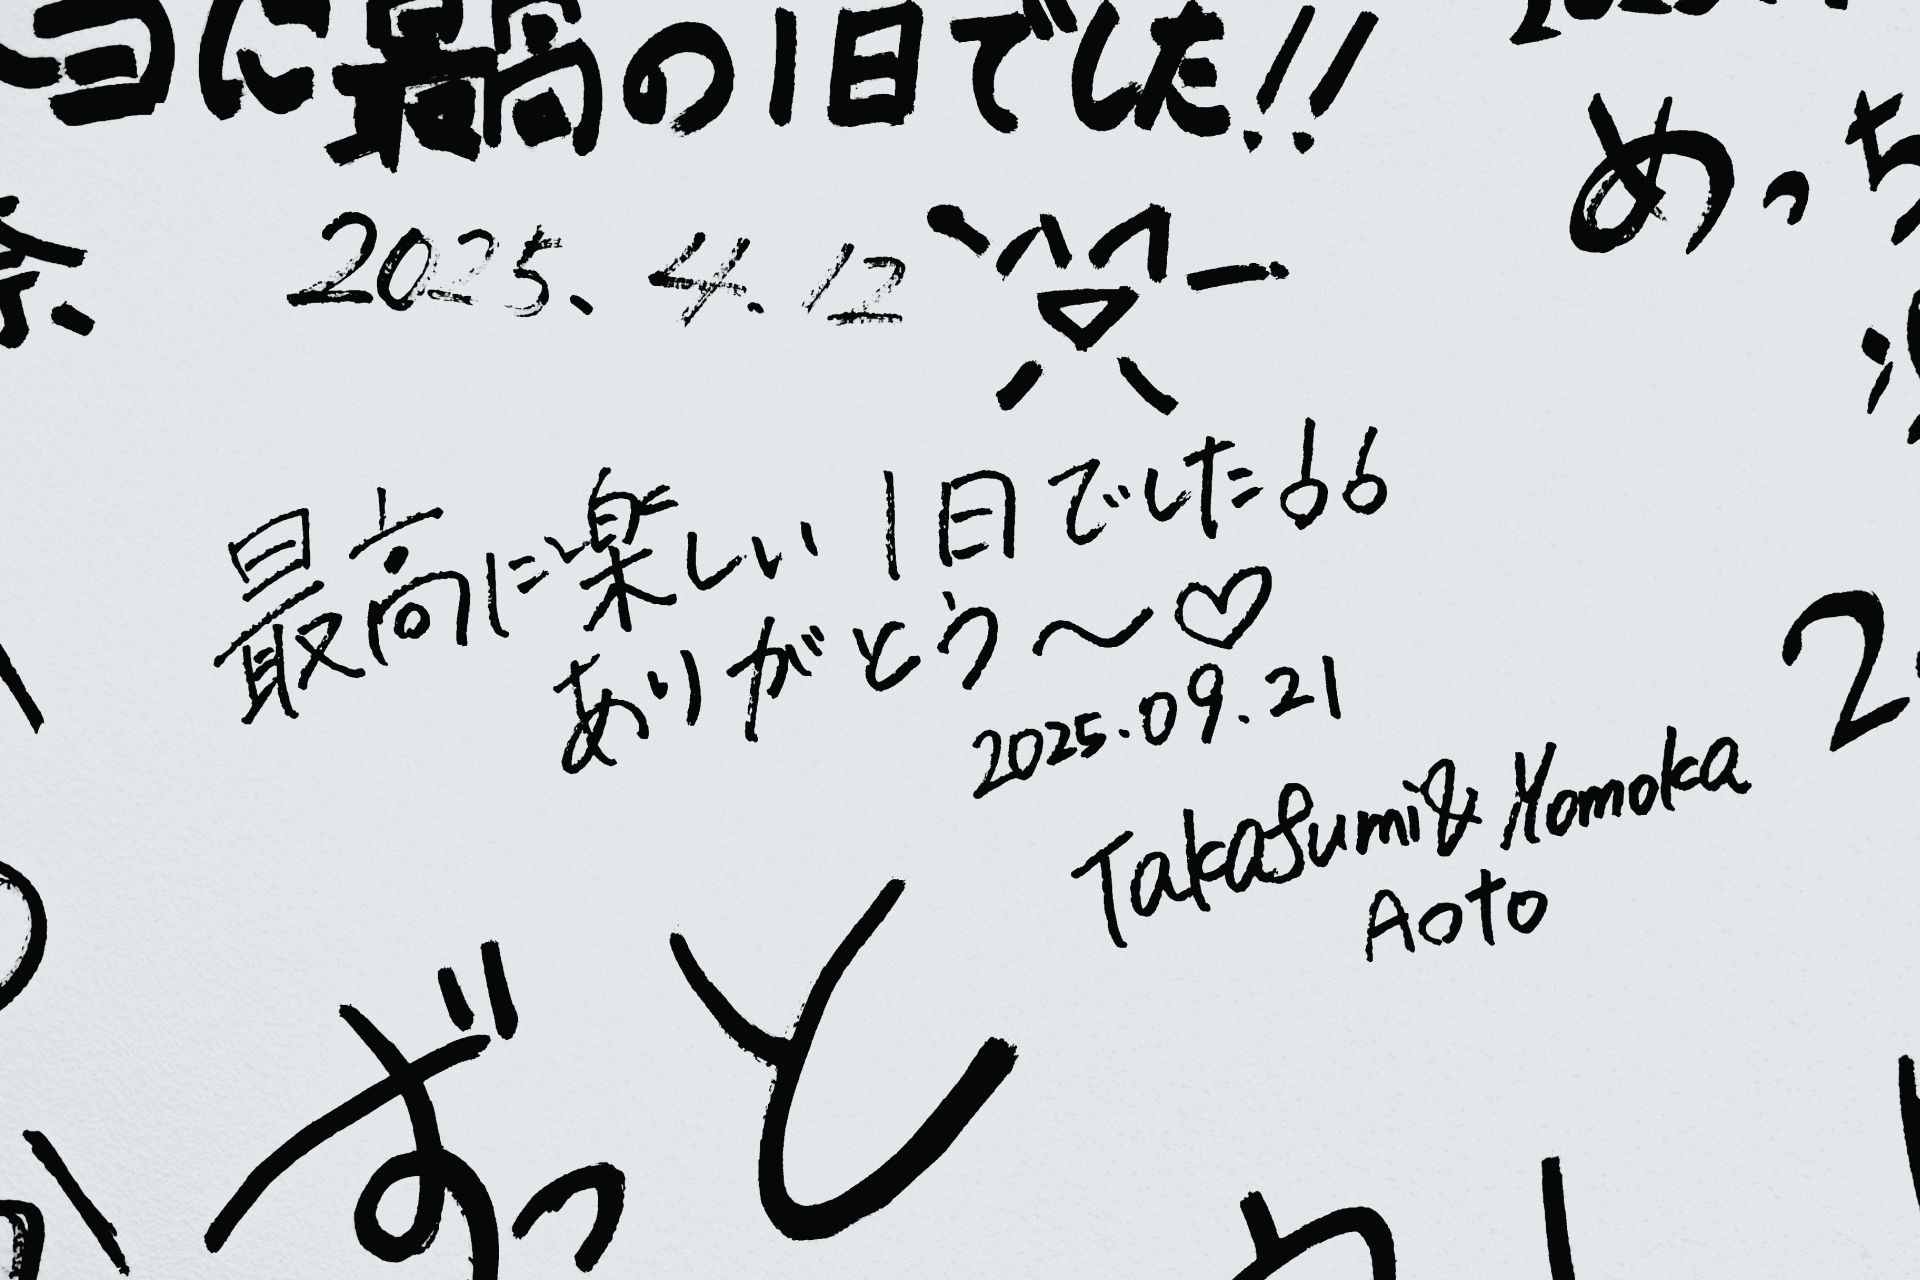 当に最高の1日でした!!
2025. 4. 12
めっち
最高に楽しい1日でした!!
ありがとう〜♡
2025.09.21
Takafumi & Yomoka
Aoto
ずっと